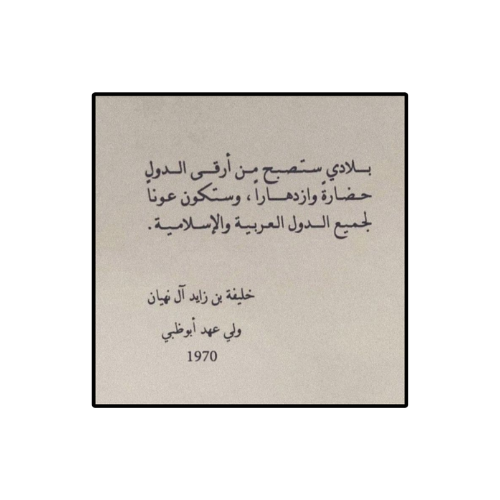 بلادي ستصبح من أرقى الدول
حضارةً وازدهاراً، وستكون عوناً
لجميع الدول العربية والإسلامية.
خليفة بن زايد آل نهيان
ولي عهد أبوظبي
1970